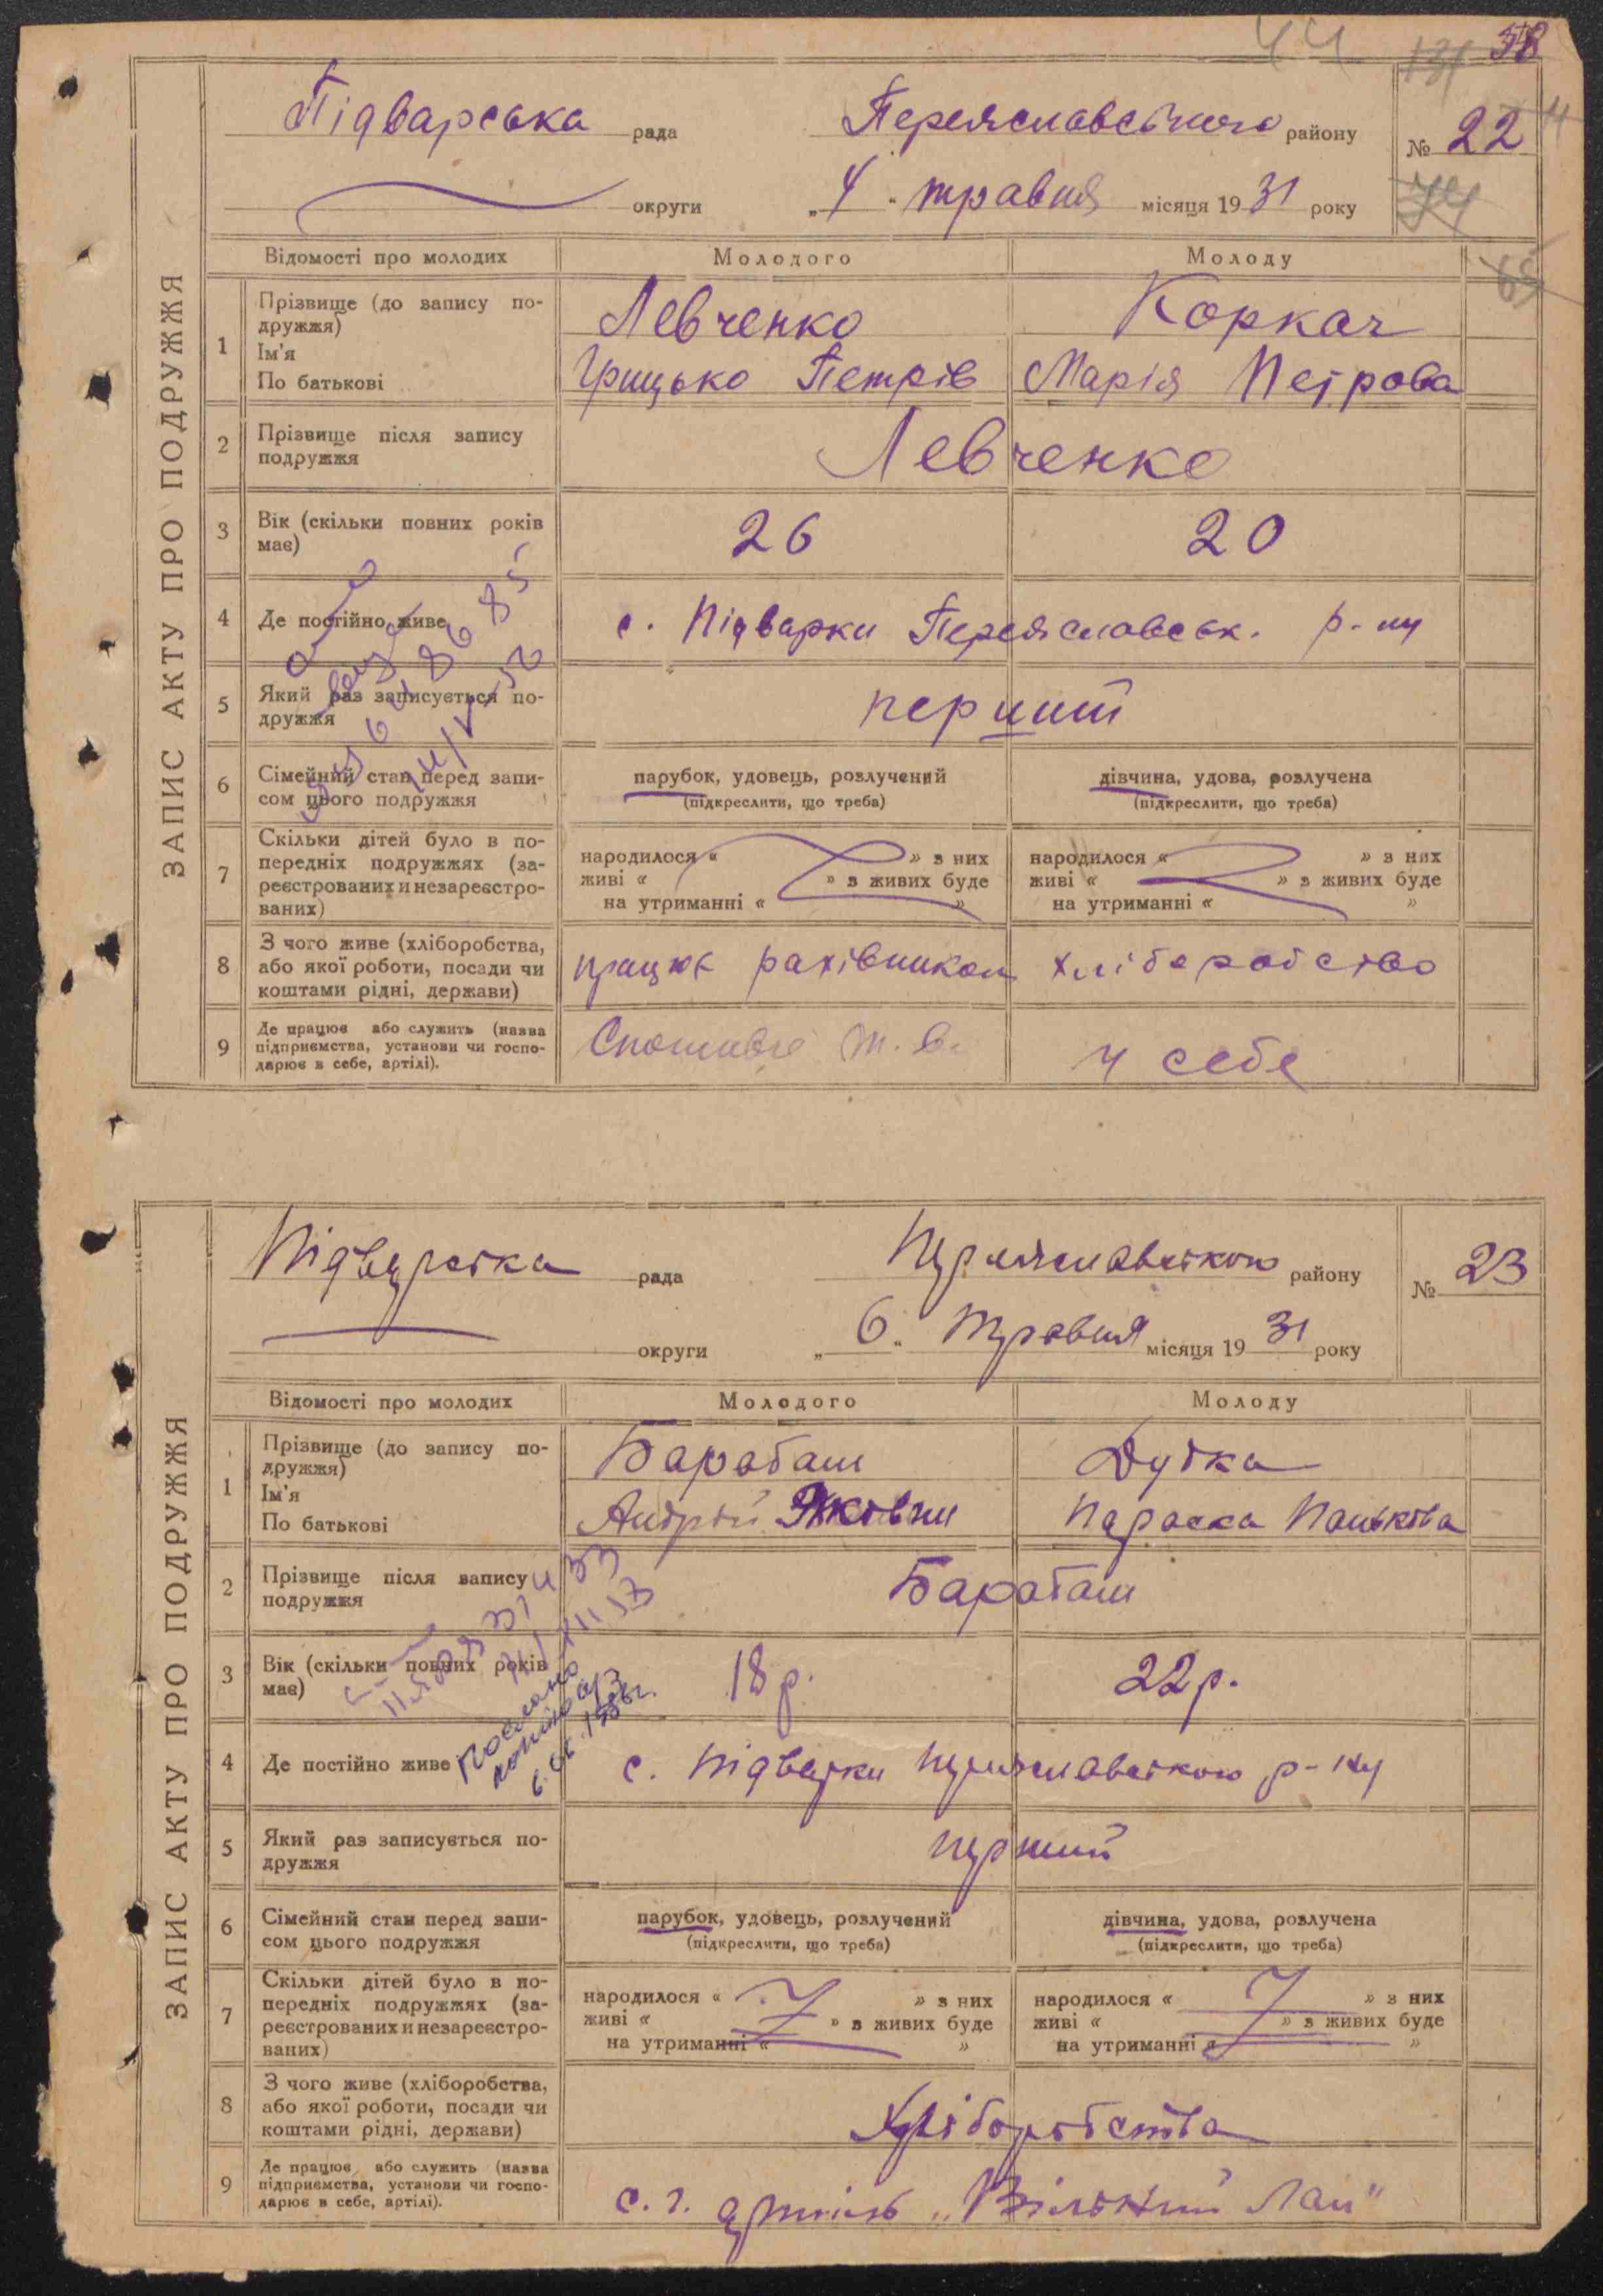 44 131 58
Підварська рада Переяславського району № 22
округи „4“ травня місяця 1931 року 74
Відомості про молодих Молодого Молоду 65
ЗАПИС АКТУ ПРО ПОДРУЖЖЯ
1 Прізвище (до запису по-
дружжя) Левченко Коркач
Ім'я
По батькові Грицько Петрів Марія Петрова
2 Прізвище після запису
подружжя Левченко
3 Вік (скільки повних років
має) 26 20
4 Де постійно живе с. Підварки Переяславськ. р-ну
5 Який раз записується по-
дружжя перший
6 Сімейний стан перед запи-
сом цього подружжя
парубок, удовець, розлучений дівчина, удова, розлучена
(підкреслити, що треба) (підкреслити, що треба)
7 Скільки дітей було в по-
передніх подружжях (за-
реєстрованих и незареєстро-
ваних)
народилося « » з них народилося « » з них
живі « » з живих буде живі « » з живих буде
на утриманні « » на утриманні « »
8 З чого живе (хліборобства,
або якої роботи, посади чи
коштами рідні, держави)
працює рахівником хліборобство
9 Де працює або служить (назва
підприємства, установи чи госпо-
дарює в себе, артілі).
т. в. у себе
Підварська рада Переяславського району № 23
округи „6“ Травня місяця 1931 року
Відомості про молодих Молодого Молоду
ЗАПИС АКТУ ПРО ПОДРУЖЖЯ
1 Прізвище (до запису по-
дружжя) Барабаш Дудка
Ім'я
По батькові Андрій Якович Параска Панькова
2 Прізвище після запису
подружжя Барабаш
3 Вік (скільки повних років
має) 18 р. 22 р.
4 Де постійно живе с. Підварки Переяславського р-ну
5 Який раз записується по-
дружжя перший
6 Сімейний стан перед запи-
сом цього подружжя
парубок, удовець, розлучений дівчина, удова, розлучена
(підкреслити, що треба) (підкреслити, що треба)
7 Скільки дітей було в по-
передніх подружжях (за-
реєстрованих и незареєстро-
ваних)
народилося « » з них народилося « » з них
живі « » з живих буде живі « » з живих буде
на утриманні « » на утриманні « »
8 З чого живе (хліборобства,
або якої роботи, посади чи
коштами рідні, держави)
Хліборобства
9 Де працює або служить (назва
підприємства, установи чи госпо-
дарює в себе, артілі).
с. г. артіль „Вільний Лан“